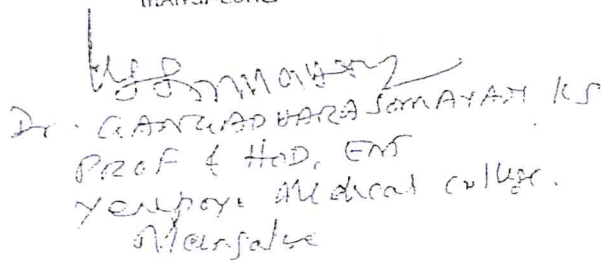 MANGALORE
Dr. GANGADHARA SOMAYAJI KS
PROF & HOD, ENT
Yenepoya Medical college.
Mangalore